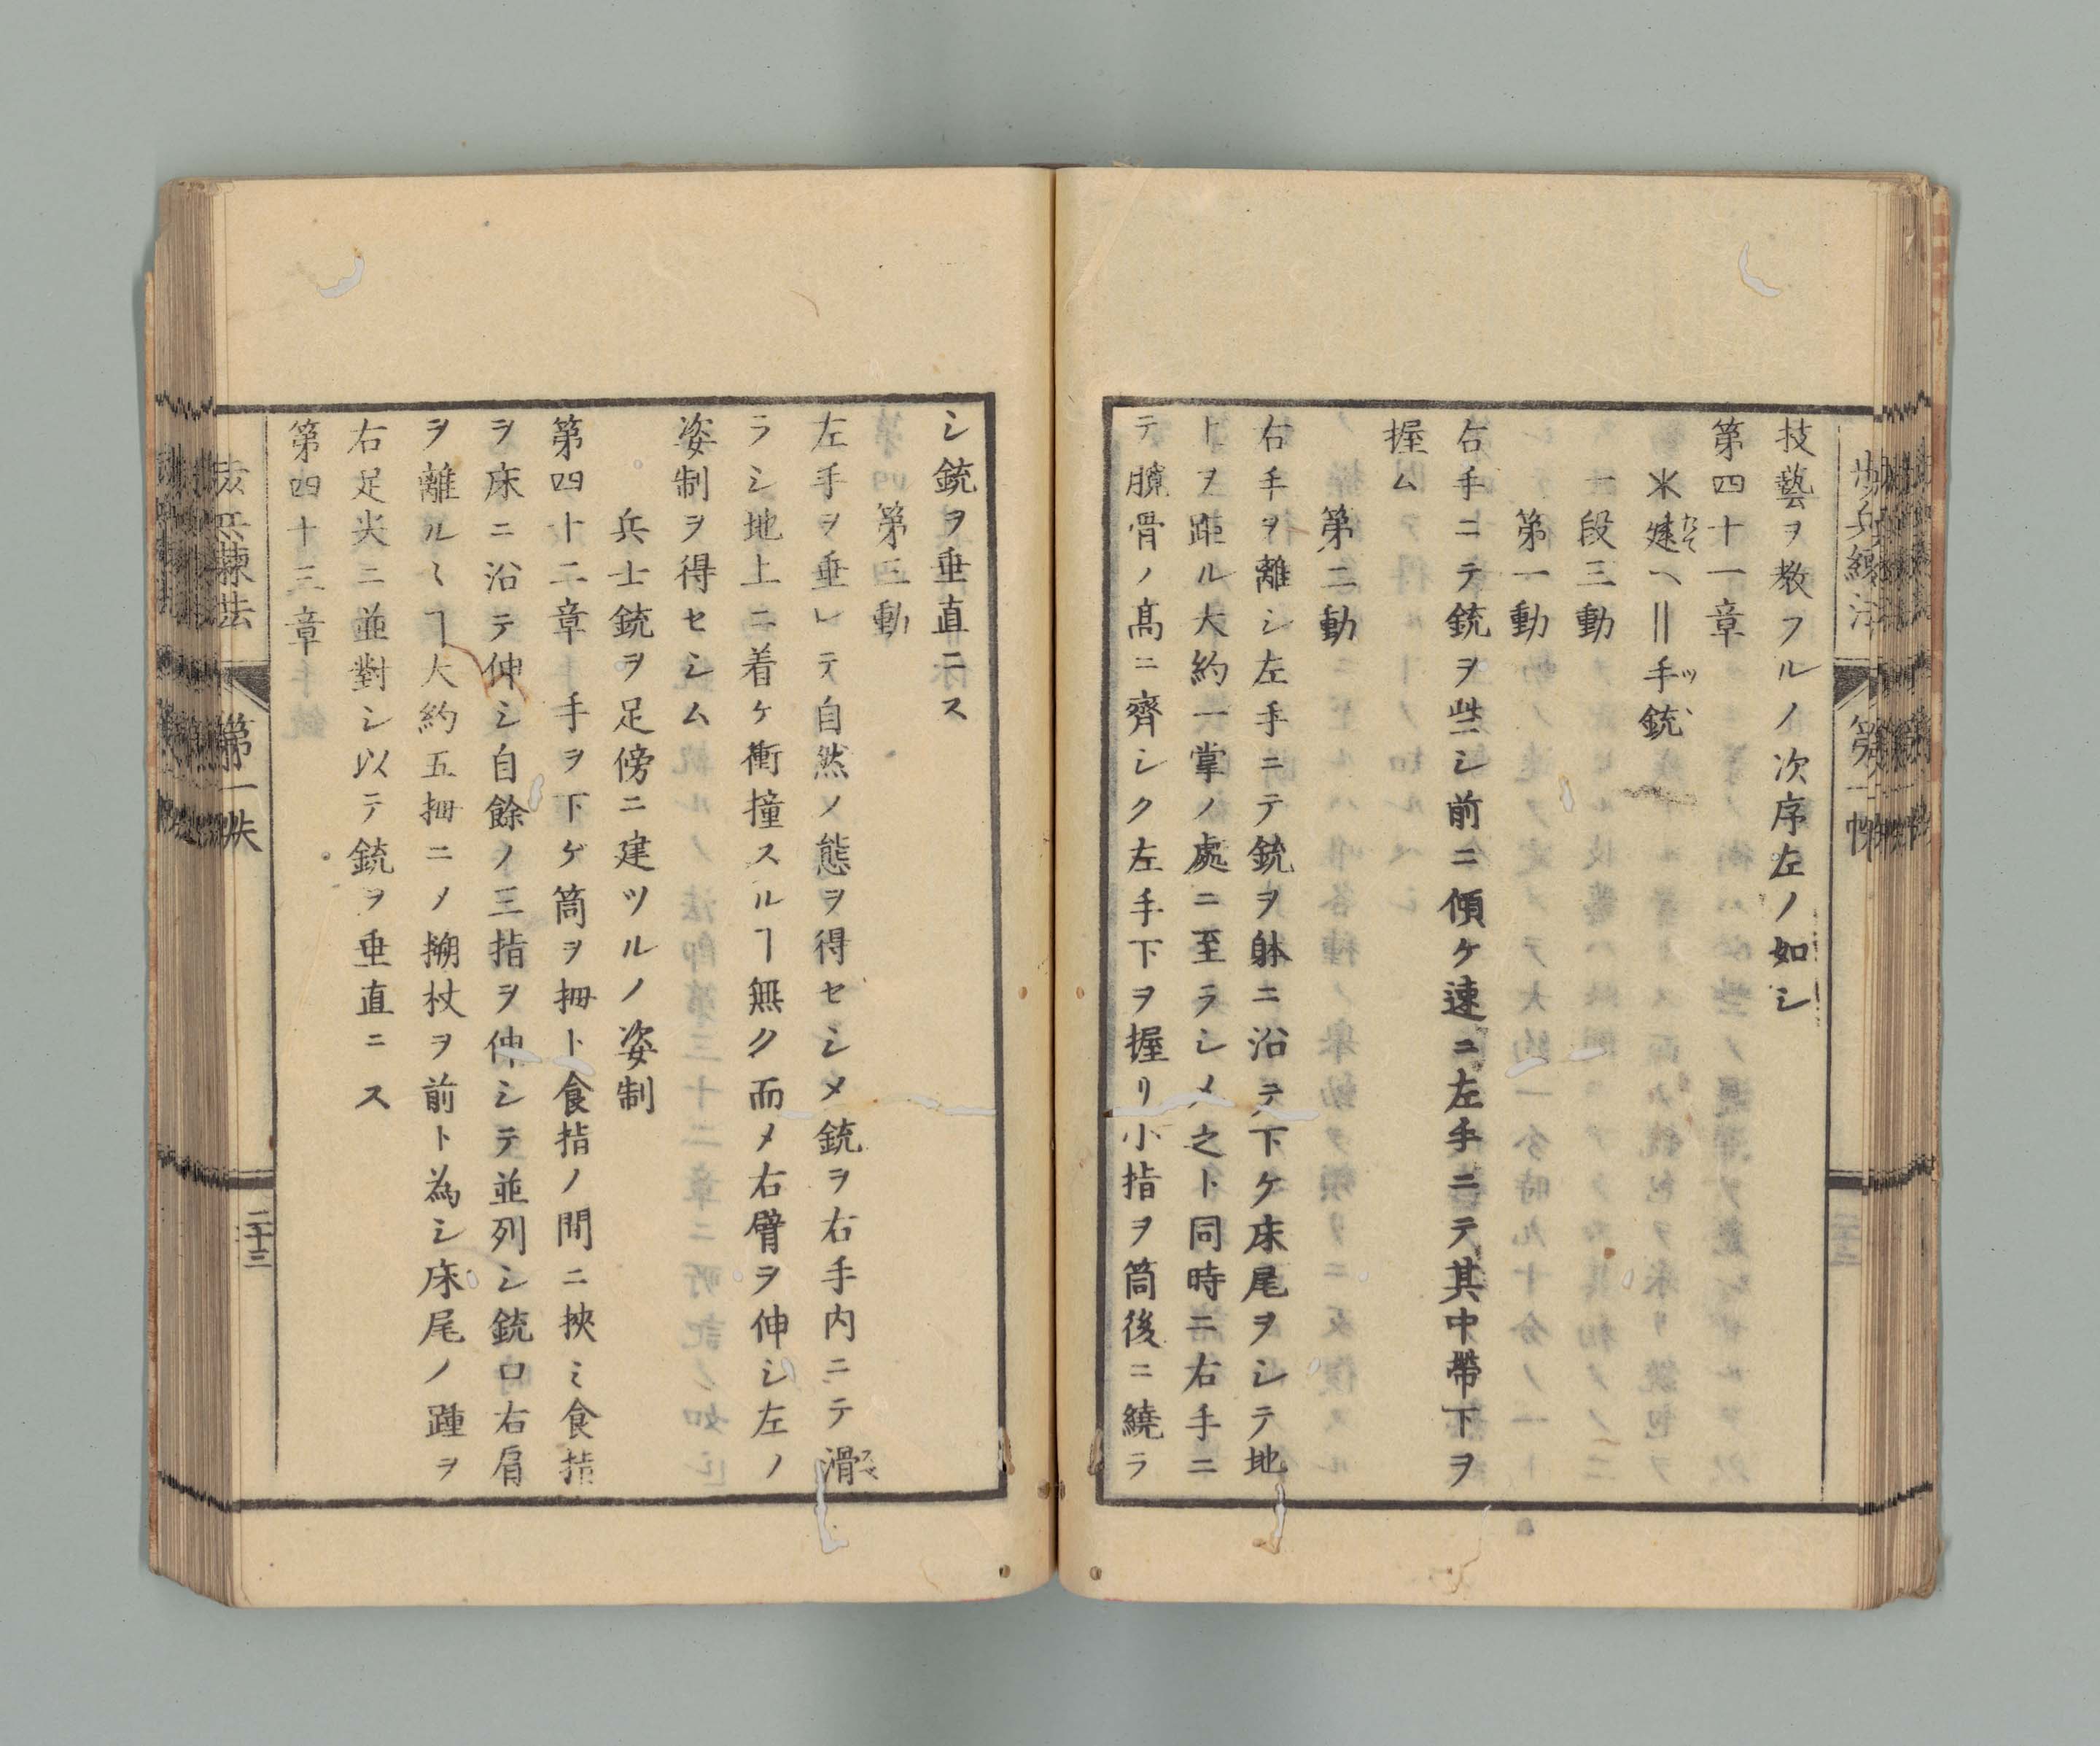 技藝ヲ教フルノ次序左ノ如シ
第四十一章
建ヘ‖手銃
一段三動
第一動
右手ニテ銃ヲ些シ前ニ傾ケ速ニ左手ニテ其中帶下ヲ
握ム
第二動
右手ヲ離シ左手ニテ銃ヲ躰ニ沿テ下ケ床尾ヲシテ地
ト距ル大約一掌ノ處ニ至ラシメ之ト同時ニ右手ニ
テ臗骨ノ髙ニ齊シク左手下ヲ握リ小指ヲ筒後ニ繞ラ
シ銃ヲ垂直ニス
第三動
左手ヲ垂レテ自然ノ態ヲ得セシメ銃ヲ右手内ニテ滑
ラシ地上ニ着ケ衝撞スルヿ無ク而メ右臂ヲ伸シ左ノ
姿制ヲ得セシム
兵士銃ヲ足傍ニ建ツルノ姿制
第四十二章 手ヲ下ゲ筒ヲ拇ト食指ノ間ニ挾ミ食指
ヲ床ニ沿テ伸シ自餘ノ三指ヲ伸シテ並列シ銃口右肩
ヲ離ルヽヿ大約五拇ニメ搠杖ヲ前ト為シ床尾ノ踵ヲ
右足尖ニ並對シ以テ銃ヲ垂直ニス
第四十三章
兵練法 第一帙 二十三